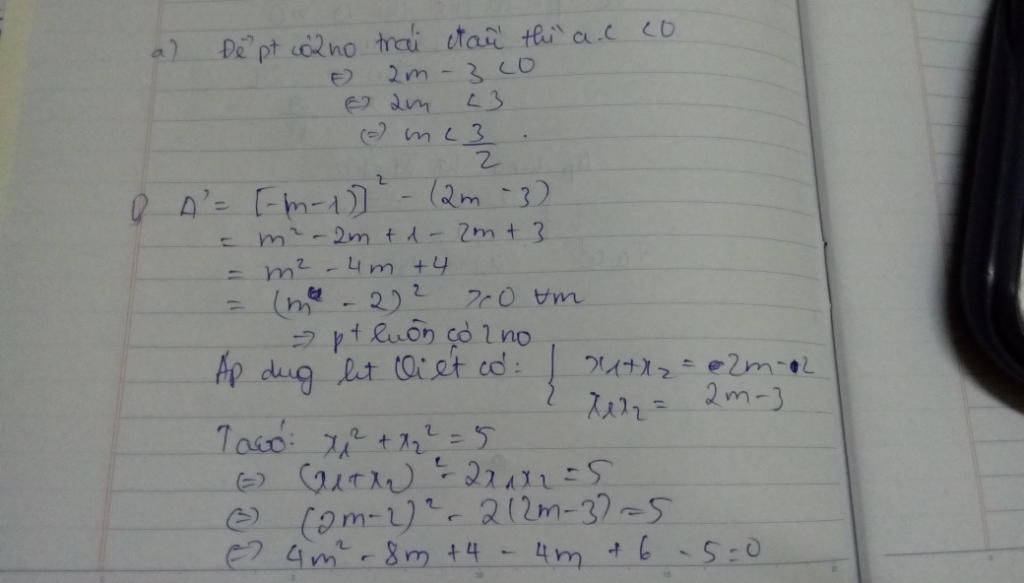 a) Để pt có 2 no trái dấu thì a.c < 0
⇔ 2m - 3 < 0
⇔ 2m < 3
⇔ m < 3/2 .
Δ' = [-(m-1)]² - (2m - 3)
= m² - 2m + 1 - 2m + 3
= m² - 4m + 4
= (m - 2)² ≥ 0 ∀m
⇒ pt luôn có 2 no
Áp dụng hệ thức Viét có: { x₁+x₂ = 2m - 2
x₁x₂ = 2m - 3
Ta có: x₁² + x₂² = 5
⇔ (x₁+x₂)² - 2x₁x₂ = 5
⇔ (2m-2)² - 2(2m-3) = 5
⇔ 4m² - 8m + 4 - 4m + 6 - 5 = 0